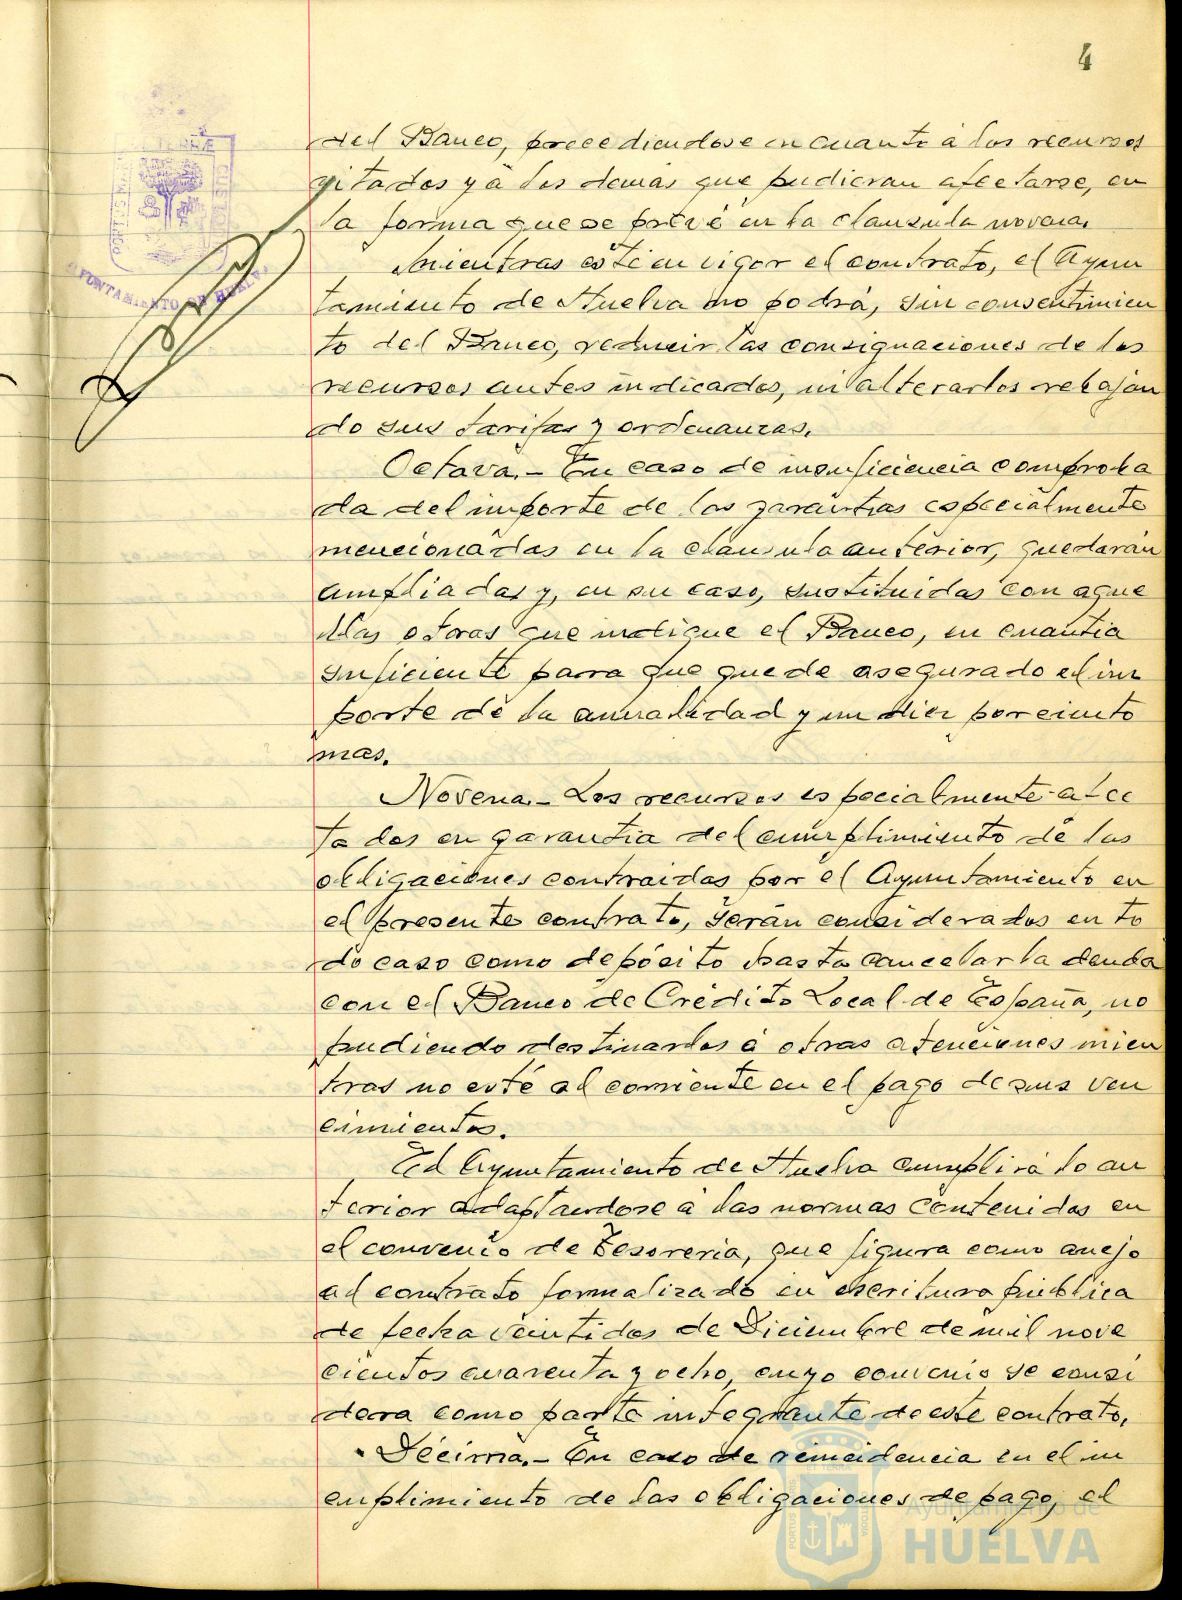 4
del Banco, procediendose en cuanto á los recursos
gitados y á los demás que pudieran afectarse, en
la forma que se prevé en la clausula novena.
Mientras esté en vigor el contrato, el Ayun
tamiento de Huelva no podrá, sin consentimien
to del Banco, reducir las consignaciones de los
recursos antes indicados, ni alterarlos rebajan
do sus tarifas y ordenanzas.
Octava.- En caso de insuficiencia comproba
da del importe de las garantias especialmente
mencionadas en la clausula anterior, quedarán
ampliadas y, en su caso, sustituidas con aque
llas otras que indique el Banco, en cuantia
suficiente para que quede asegurado el im
porte de la anualidad y un diez por ciento
mas.
Novena.- Los recursos especialmente afec
tados en garantia del cumplimiento de las
obligaciones contraidas por el Ayuntamiento en
el presente contrato, serán considerados en to
do caso como depósito hasta cancelar la deuda
con el Banco de Crédito Local de España, no
pudiendo destinarlos á otras atenciones mien
tras no esté al corriente en el pago de sus ven
cimientos.
El Ayuntamiento de Huelva cumplirá lo an
terior adaptandose a las normas contenidas en
el convenio de Tesoreria, que figura como anejo
al contrato formalizado en escritura pública
de fecha veintidos de Diciembre de mil nove
cientos cuarenta y ocho, cuyo convenio se consi
dera como parte integrante de este contrato.
Décima.- En caso de reincidencia en el in
cumplimiento de las obligaciones de pago, el
AYUNTAMIENTO DE HUELVA
Ayuntamiento de
HUELVA